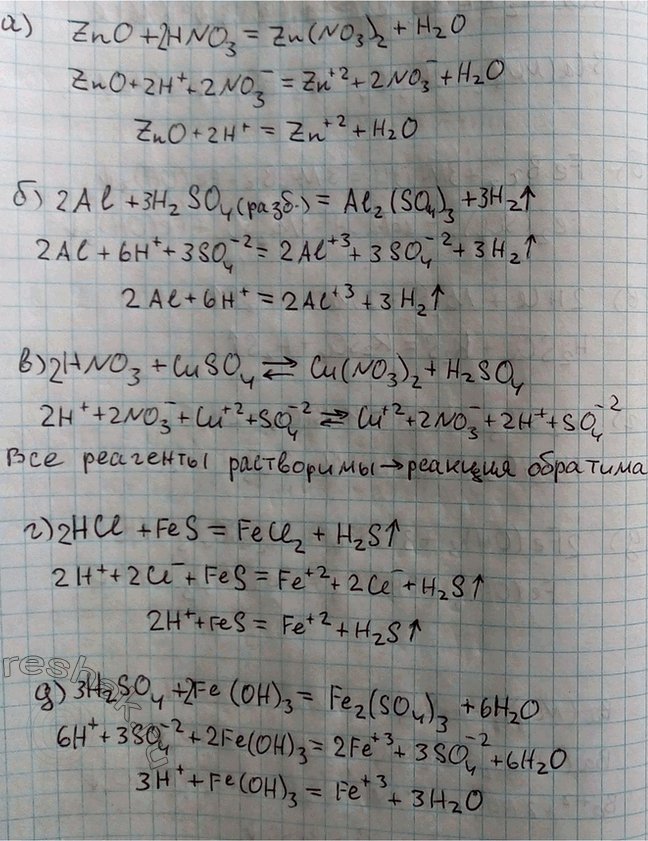 а) ZnO + 2HNO₃ = Zn(NO₃)₂ + H₂O
ZnO + 2H⁺ + 2NO₃⁻ = Zn⁺² + 2NO₃⁻ + H₂O
ZnO + 2H⁺ = Zn⁺² + H₂O
б) 2Al + 3H₂SO₄(разб.) = Al₂(SO₄)₃ + 3H₂↑
2Al + 6H⁺ + 3SO₄⁻² = 2Al⁺³ + 3SO₄⁻² + 3H₂↑
2Al + 6H⁺ = 2Al⁺³ + 3H₂↑
в) 2HNO₃ + CuSO₄ ⇄ Cu(NO₃)₂ + H₂SO₄
2H⁺ + 2NO₃⁻ + Cu⁺² + SO₄⁻² ⇄ Cu⁺² + 2NO₃⁻ + 2H⁺ + SO₄⁻²
Все реагенты растворимы → реакция обратима
г) 2HCl + FeS = FeCl₂ + H₂S↑
2H⁺ + 2Cl⁻ + FeS = Fe⁺² + 2Cl⁻ + H₂S↑
2H⁺ + FeS = Fe⁺² + H₂S↑
д) 3H₂SO₄ + 2Fe(OH)₃ = Fe₂(SO₄)₃ + 6H₂O
6H⁺ + 3SO₄⁻² + 2Fe(OH)₃ = 2Fe⁺³ + 3SO₄⁻² + 6H₂O
3H⁺ + Fe(OH)₃ = Fe⁺³ + 3H₂O
reshak.ru